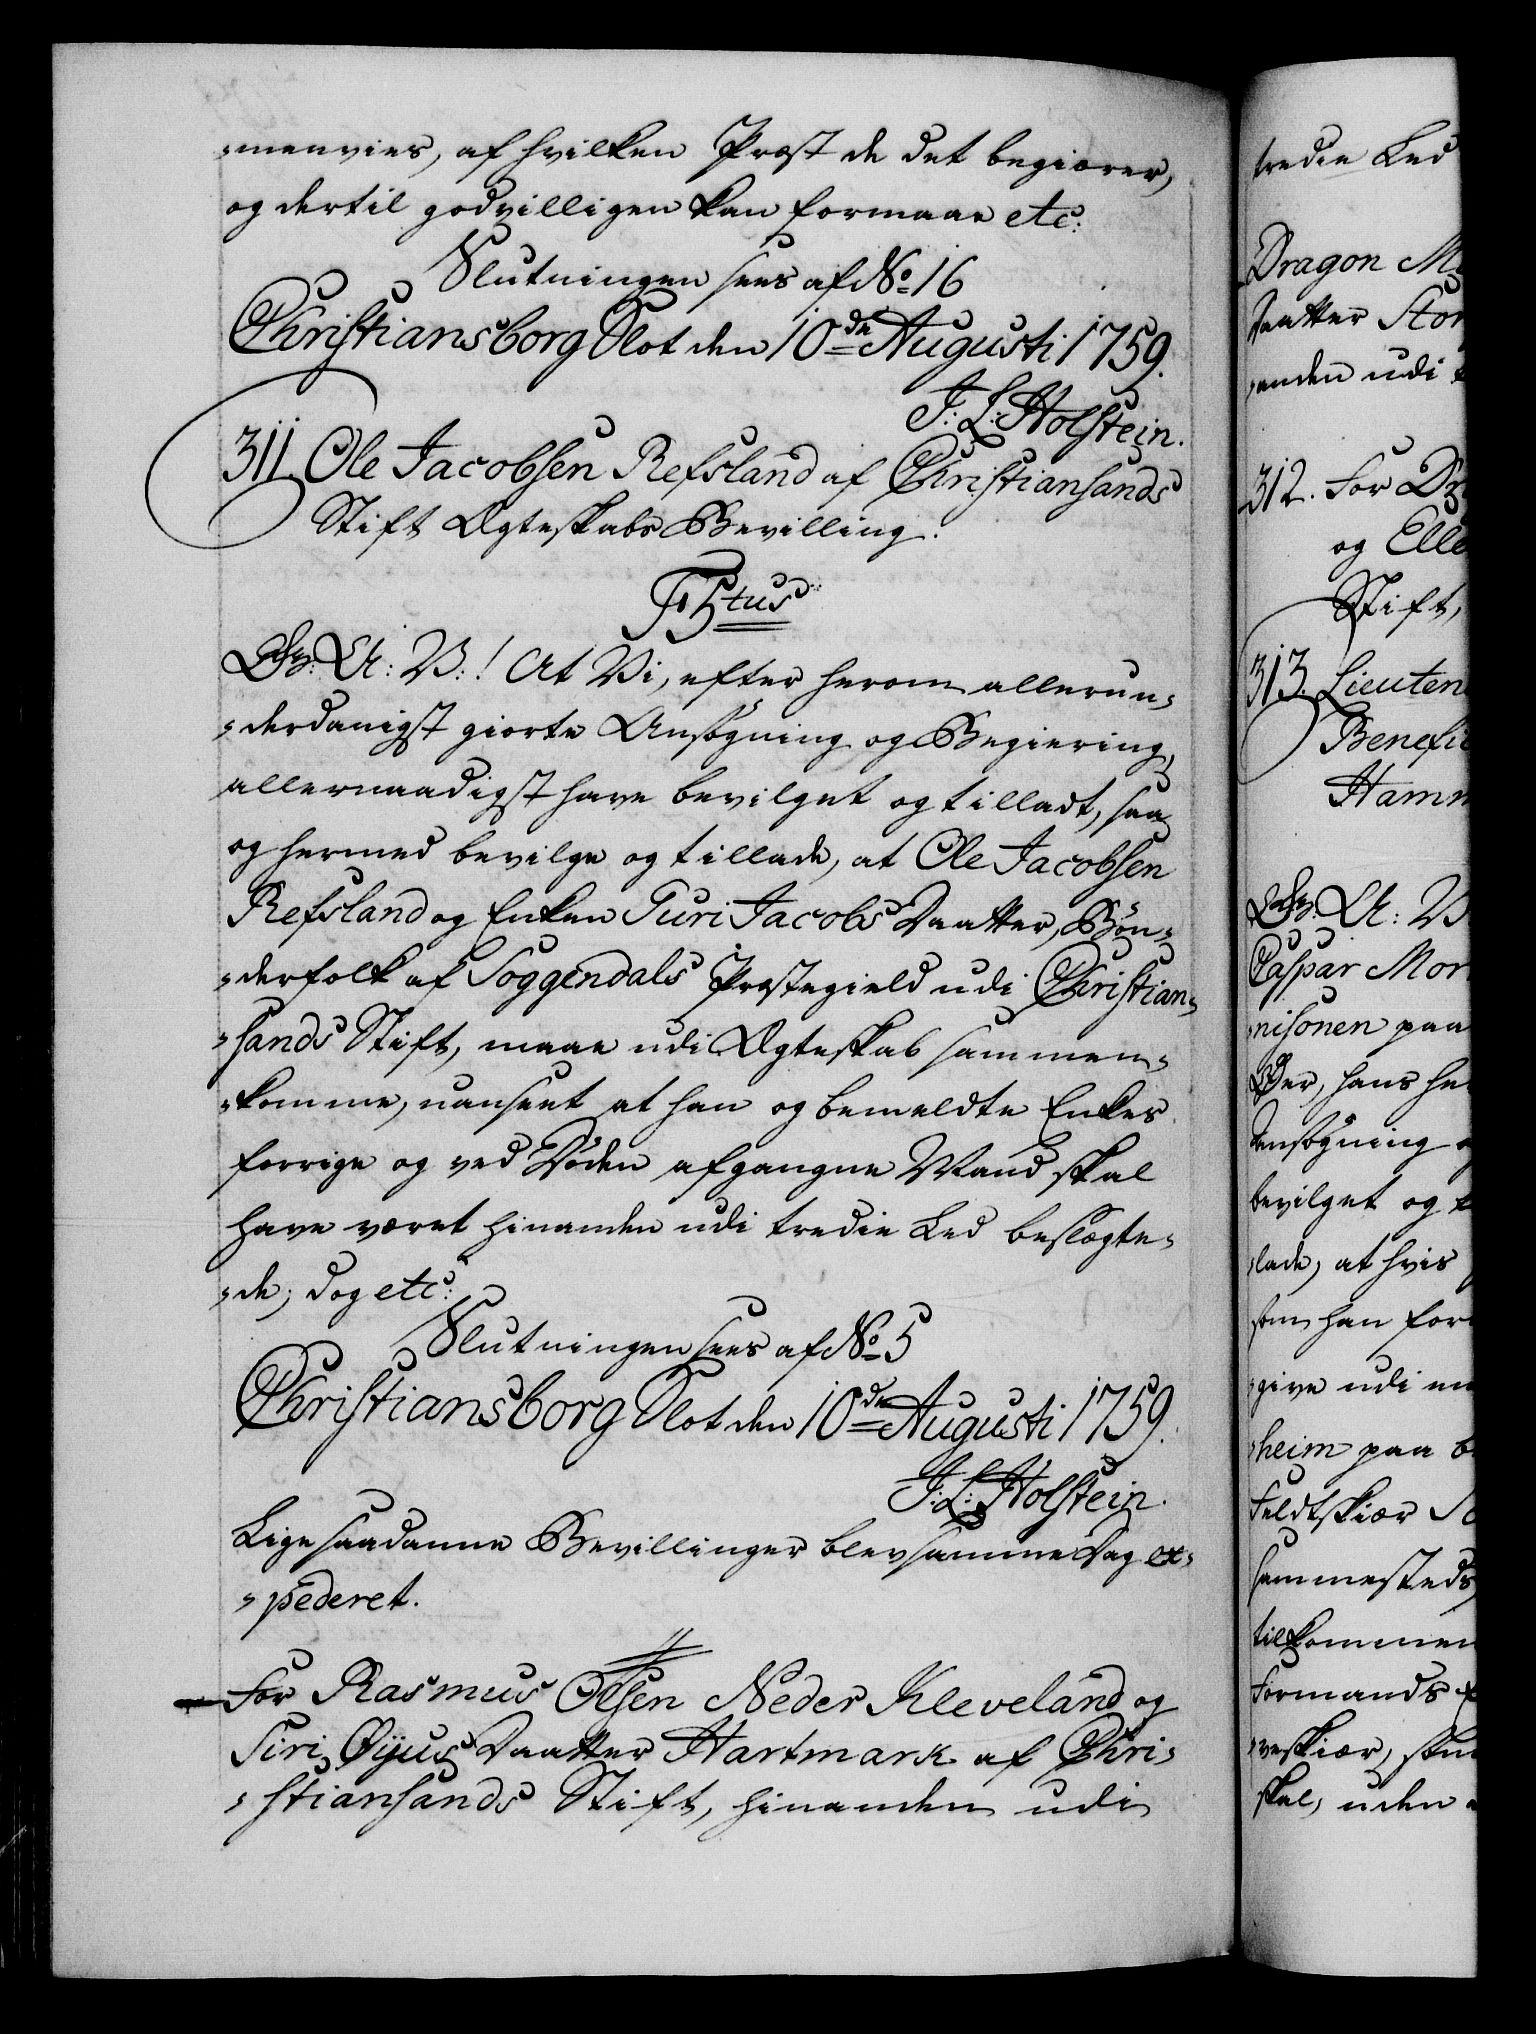 -menvies, af hvilken Præst de det begiærer,
og dertil godvilligen kan formaae etc:
Slutningen sees af No 16
Christiansborg Slot den 10de Augusti 1759.
J: L: Holstein.
311 Ole Jacobsen Refsland af Christiansands
Stift Ægteskabs Bevilling.
F5tus
G: A: V:! At Vi, efter herom allerun-
-derdanigst giorte Ansøgning og Begiering,
allernaadigst have bevilget og tilladt, saa
og hermed bevilge og tillade, at Ole Jacobsen
Refsland og Enken Turi Jacobs Daatter, Bøn-
-derfolk af Soggendals Præstegield udi Christian-
-sands Stift, maae udi Ægteskab sammen-
-komme, uanseet at han og bemeldte Enkes
forrige og ved Døden afgangne Mand skal
have været hinanden udi tredie Led beslægte-
-de; dog etc:
Slutningen sees af No 5
Christiansborg Slot den 10de Augusti 1759.
J: L: Holstein.
Lige saadanne Bevillinger blev samme Dag ex-
-pederet.
For Rasmus Olsen Neder Kleveland og
Siri Øyus Daatter Hartmark af Chri-
-stiansands Stift, hinanden udi
tredie Led
Dragon
Daatter
-anden udi
312. For
og
Stift,
313. Lieuten
Benefi
Hamm
G: A: V
Caspar Mor
-nisonen paa
Øer, hans he
Ansøgning
bevilget og t
-lade, at hvis
som han for
-give udi
-heim paa b
Feldtskiær
sammesteds
tilkommen
Formands
-veskiær, som
skal, uden